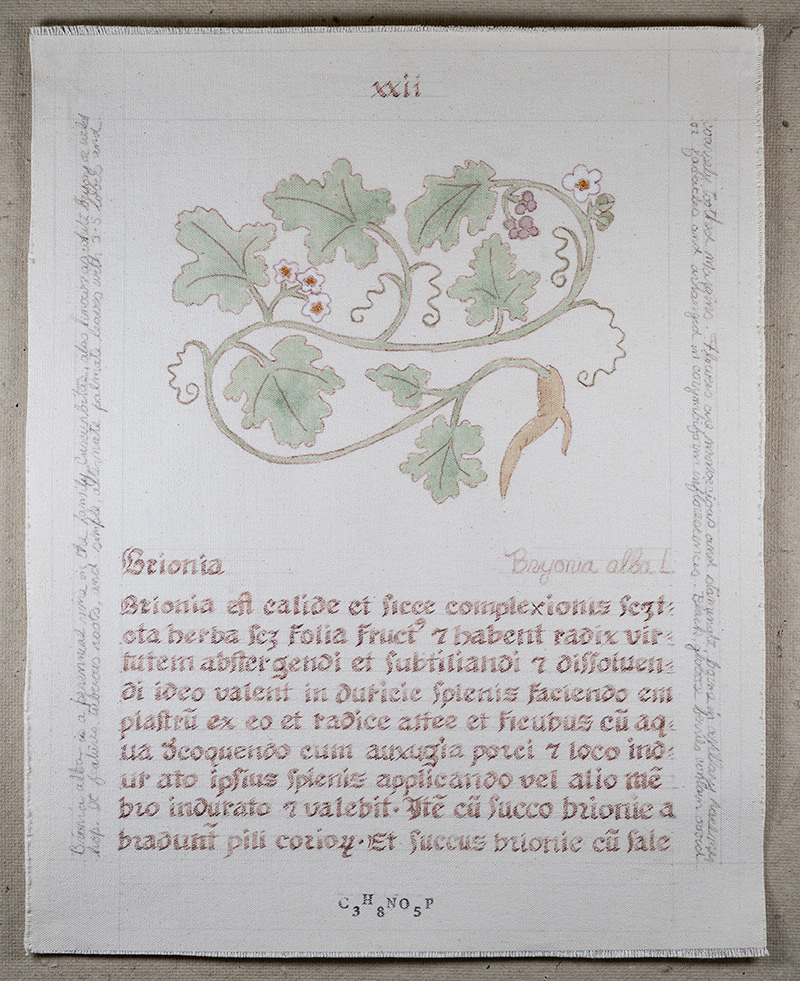 xxii
Brionia
Bryonia alba L
Brionia est calide et sicce complexionis sczt⸗
ota herba scz folia fruct⁹ ⁊ habent radix vir⸗
tutem abstergendi et subtiliandi ⁊ dissoluen⸗
di ideo valent in duricie splenis faciendo em
plastrū ex eo et radice aftee et ficubus cū aq⸗
ua dcoquendo cum auxugia porci ⁊ loco ind⸗
ur ato ipsius splenis applicando vel alio mē⸗
bro indurato ⁊ valebit· Itē cū succo brionie a
bradunt pili corioꝝ· Et succus brionie cū sale
C3H8NO5P
Bryonia alba is a perennial vine in the family Cucurbitaceae, also known as white bryony or wild
hop. It has tuberous roots, and simple, alternate palmate leaves with 3-5 lobes and
coiled tendrils. Flowers are monoecious and form in axillary racemes
or fascicles and arranged in corymbiform inflorescences. Black